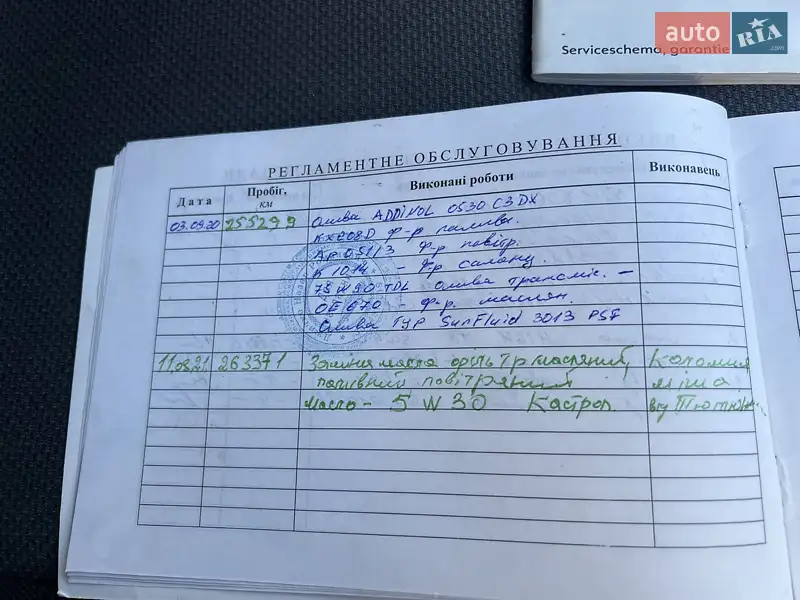 auto RIA .com
Serviceschema, garantie
РЕГЛАМЕНТНЕ ОБСЛУГОВУВАННЯ
Дата Пробіг, км Виконані роботи Виконавець
03.09.20 255299 Олива ADDINOL 0530 C3 DX
KX208D ф-р палива.
Ap 051/3 ф-р повітр.
K 1014 - ф-р салону.
75W90 TDL олива трансміс. -
OE 670 - ф-р. маслян.
Олива ГУР SunFluid 3013 PSF
11.08.21 263371 Заміна масла фільтр масляний, Коломия
паливний повітряний міша
Масло - 5W30 Кастрол